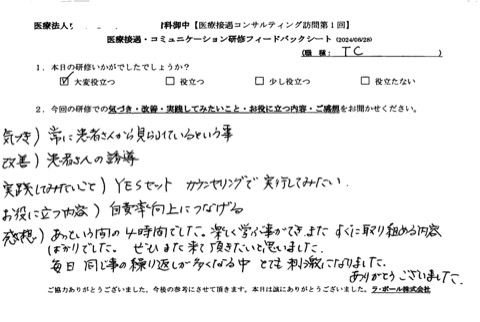 医療法人 科御中【医療接遇コンサルティング訪問第1回】
医療接遇・コミュニケーション研修フィードバックシート (2024/06/28)
(職種： TC )
1．本日の研修いかがでしたでしょうか？
☑ 大変役立つ □ 役立つ □ 少し役立つ □ 役立たない
2．今回の研修での気づき・改善・実践してみたいこと・お役に立つ内容・ご感想をお聞かせください。
気づき）常に患者さんから見られているという事
改善）患者さんの誘導
実践してみたいこと）YESセット カウンセリングで実行してみたい．
お役に立つ内容）自費率向上につなげる
感想）あっという間の4時間でした。楽しく学ぶ事ができ、また すぐに取り組める内容
ばかりでした。 ぜひまた来て頂きたいと思いました．
毎日 同じ事の繰り返しが多くなる中 とても刺激になりました．
ありがとうございました．
ご協力ありがとうございました。今後の参考にさせて頂きます。本日は誠にありがとうございました。ラ・ポール株式会社